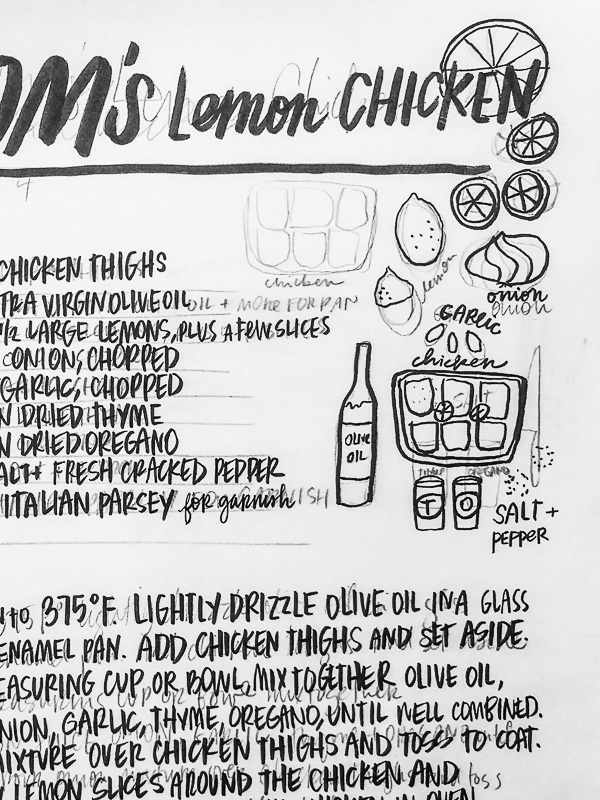 OM's Lemon CHICKEN
CHICKEN THIGHS
TRA VIRGIN OLIVE OIL OIL + MORE FOR PAN
1/2 LARGE LEMONS, PLUS A FEW SLICES
ONION, CHOPPED
GARLIC, CHOPPED
N DRIED THYME
N DRIED OREGANO
ALT + FRESH CRACKED PEPPER
ITALIAN PARSEY for garnish
chicken
lemon
onion
onion
GARLIC
chicken
OLIVE
OIL
THYME OREGANO
T O
SALT +
PEPPER
to 375°F. LIGHTLY DRIZZLE OLIVE OIL IN A GLASS
ENAMEL PAN. ADD CHICKEN THIGHS AND SET ASIDE.
EASURING CUP OR BOWL MIX TOGETHER OLIVE OIL,
NION, GARLIC, THYME, OREGANO, UNTIL WELL COMBINED.
MIXTURE OVER CHICKEN THIGHS AND TOSS TO COAT.
LEMON SLICES AROUND THE CHICKEN AND
IN OVEN